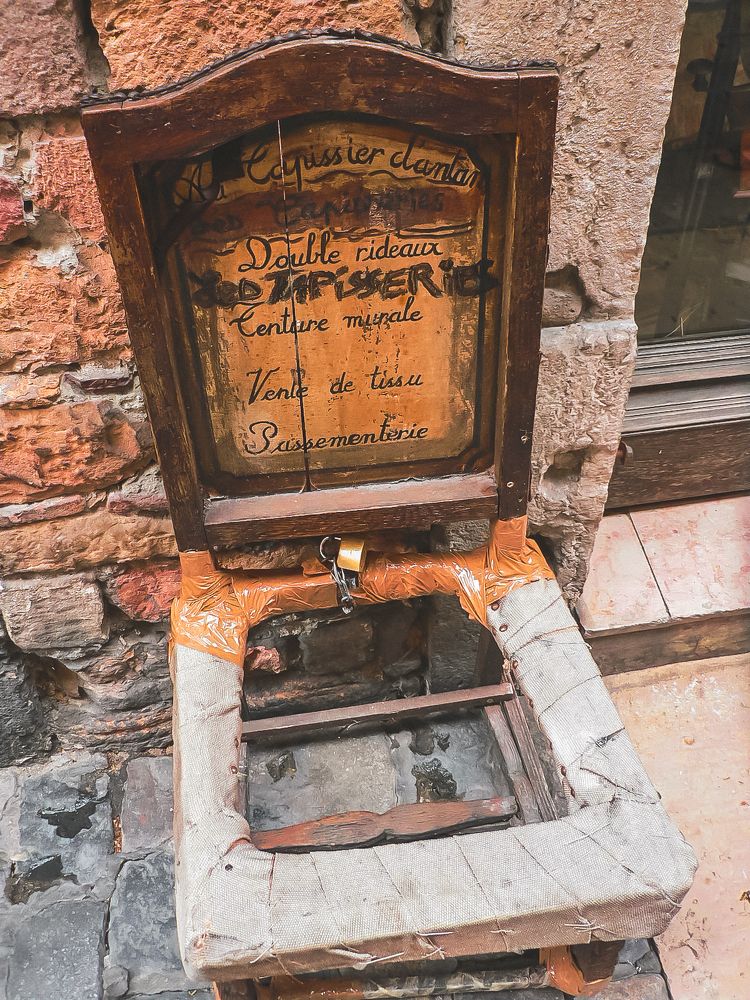 Au Tapissier d'antan
des Tapisseries
Double rideaux
TAPISSERIES
Tenture murale
Vente de tissu
Passementerie